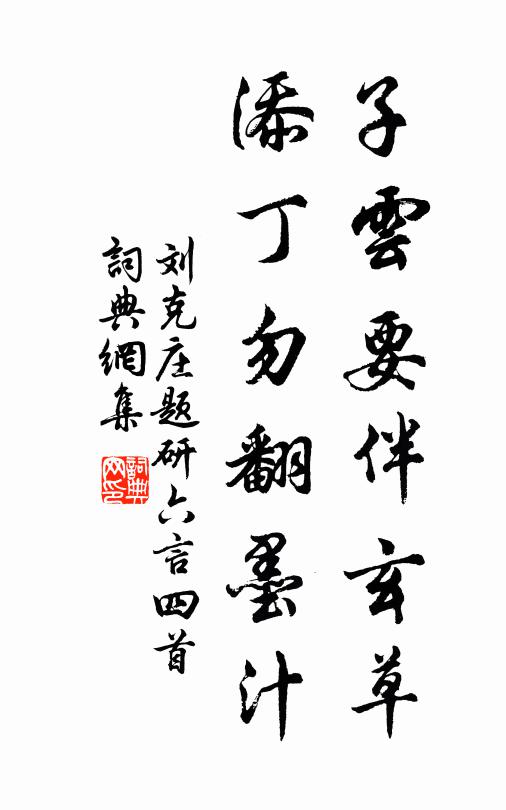 子雲要伴玄草
添丁勿翻墨汁
刘克庄题研六言四首
詞典網集
詞典网印